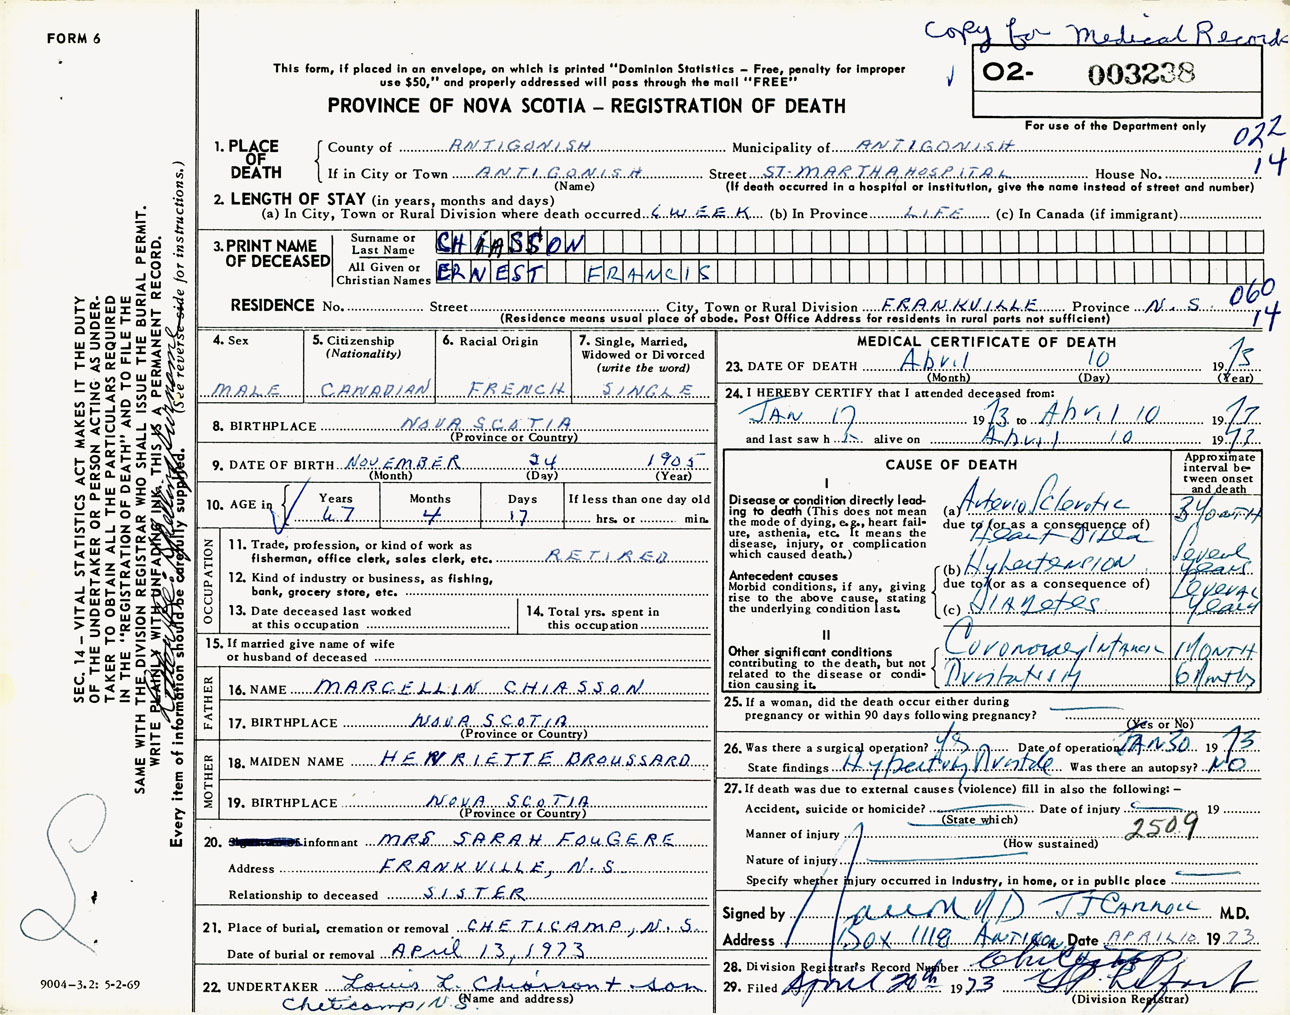 FORM 6
Copy for Medical Records
This form, if placed in an envelope, on which is printed "Dominion Statistics – Free, penalty for improper
use $50," and properly addressed will pass through the mail "FREE"
PROVINCE OF NOVA SCOTIA – REGISTRATION OF DEATH
02- 003238
For use of the Department only
022
14
1. PLACE OF DEATH
County of ANTIGONISH Municipality of ANTIGONISH
If in City or Town ANTIGONISH Street ST-MARTHA HOSPITAL House No.
(Name) (If death occurred in a hospital or institution, give the name instead of street and number)
2. LENGTH OF STAY (in years, months and days)
(a) In City, Town or Rural Division where death occurred WEEK (b) In Province LIFE (c) In Canada (if immigrant)
3. PRINT NAME OF DECEASED
Surname or Last Name CHIASSON
All Given or Christian Names ERNEST FRANCIS
060
14
RESIDENCE No. Street City, Town or Rural Division FRANKVILLE Province N.S.
(Residence means usual place of abode. Post Office Address for residents in rural parts not sufficient)
4. Sex MALE
5. Citizenship (Nationality) CANADIAN
6. Racial Origin FRENCH
7. Single, Married, Widowed or Divorced (write the word) SINGLE
8. BIRTHPLACE NOVA SCOTIA
(Province or Country)
9. DATE OF BIRTH NOVEMBER 24 1905
(Month) (Day) (Year)
10. AGE in Years 67 Months 4 Days 17 If less than one day old hrs. or min.
OCCUPATION
11. Trade, profession, or kind of work as
fisherman, office clerk, sales clerk, etc. RETIRED
12. Kind of industry or business, as fishing,
bank, grocery store, etc.
13. Date deceased last worked
at this occupation
14. Total yrs. spent in
this occupation
15. If married give name of wife
or husband of deceased
FATHER
16. NAME MARCELLIN CHIASSON
17. BIRTHPLACE NOVA SCOTIA
(Province or Country)
MOTHER
18. MAIDEN NAME HENRIETTE BROUSSARD
19. BIRTHPLACE NOVA SCOTIA
(Province or Country)
20. informant MRS SARAH FOUGERE
Address FRANKVILLE, N.S
Relationship to deceased SISTER
21. Place of burial, cremation or removal CHETICAMP, N.S.
Date of burial or removal April 13, 1973
22. UNDERTAKER Louis L. Chiasson + son
(Name and address)
Cheticamp, N.S.
MEDICAL CERTIFICATE OF DEATH
23. DATE OF DEATH April 10 1973
(Month) (Day) (Year)
24. I HEREBY CERTIFY that I attended deceased from:
JAN 17 1973 to April 10 1973
and last saw h im alive on April 10 1973
CAUSE OF DEATH
Approximate interval between onset and death
I
Disease or condition directly leading to death (This does not mean the mode of dying, e.g., heart failure, asthenia, etc. It means the disease, injury, or complication which caused death.)
(a) Arterio Sclerotic
due to (or as a consequence of)
Heart Disea
(b) Hypertension Several years
due to (or as a consequence of)
(c) Diabetes Several years
Antecedent causes
Morbid conditions, if any, giving rise to the above cause, stating the underlying condition last.
II
Other significant conditions contributing to the death, but not related to the disease or condition causing it.
Coronary Infarct 1 Month
Prostatism 6 Months
25. If a woman, did the death occur either during
pregnancy or within 90 days following pregnancy?
(Yes or No)
26. Was there a surgical operation? yes Date of operation JAN 30 1973
State findings Prostate Was there an autopsy? NO
27. If death was due to external causes (violence) fill in also the following: –
Accident, suicide or homicide? Date of injury 19
(State which)
2509
Manner of injury
(How sustained)
Nature of injury
Specify whether injury occurred in Industry, in home, or in public place
Signed by MD JJ CARROLL M.D.
Address Box 1118 Date APRIL 10 1973
28. Division Registrar's Record Number
29. Filed April 20th 1973
(Division Registrar)
SEC. 14 – VITAL STATISTICS ACT MAKES IT THE DUTY
OF THE UNDERTAKER OR PERSON ACTING AS UNDERTAKER
TO OBTAIN ALL THE PARTICULARS REQUIRED
IN THE "REGISTRATION OF DEATH" AND TO FILE THE
SAME WITH THE DIVISION REGISTRAR WHO SHALL ISSUE THE BURIAL PERMIT.
WRITE PLAINLY WITH UNFADING INK. THIS IS A PERMANENT RECORD.
Every item of information should be carefully supplied. (See reverse side for instructions.)
9004-3.2: 5-2-69